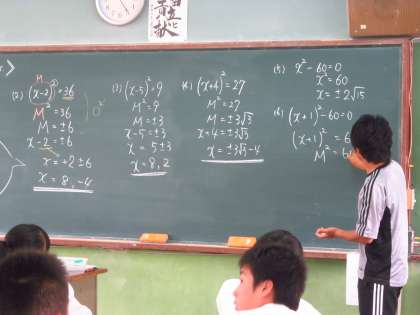 (2) (x-2)²=36
M
M²=36
M=±6
x-2=±6
x=+2±6
x=8,-4
(3) (x-5)²=9
M²=9
M=±3
x-5=±3
x=5±3
x=8,2
(4) (x+4)²=27
M²=27
M=±3√3
x+4=±3√3
x=±3√3-4
(5) x²-60=0
x²=60
x=±2√15
(6) (x+1)²-60=0
(x+1)²=6
M²=6
貢献